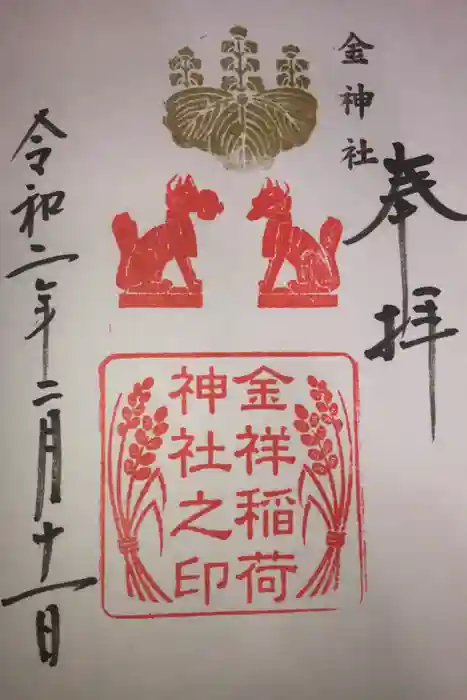 金神社
奉拝
金祥稲荷
神社之印
令和二年二月十一日